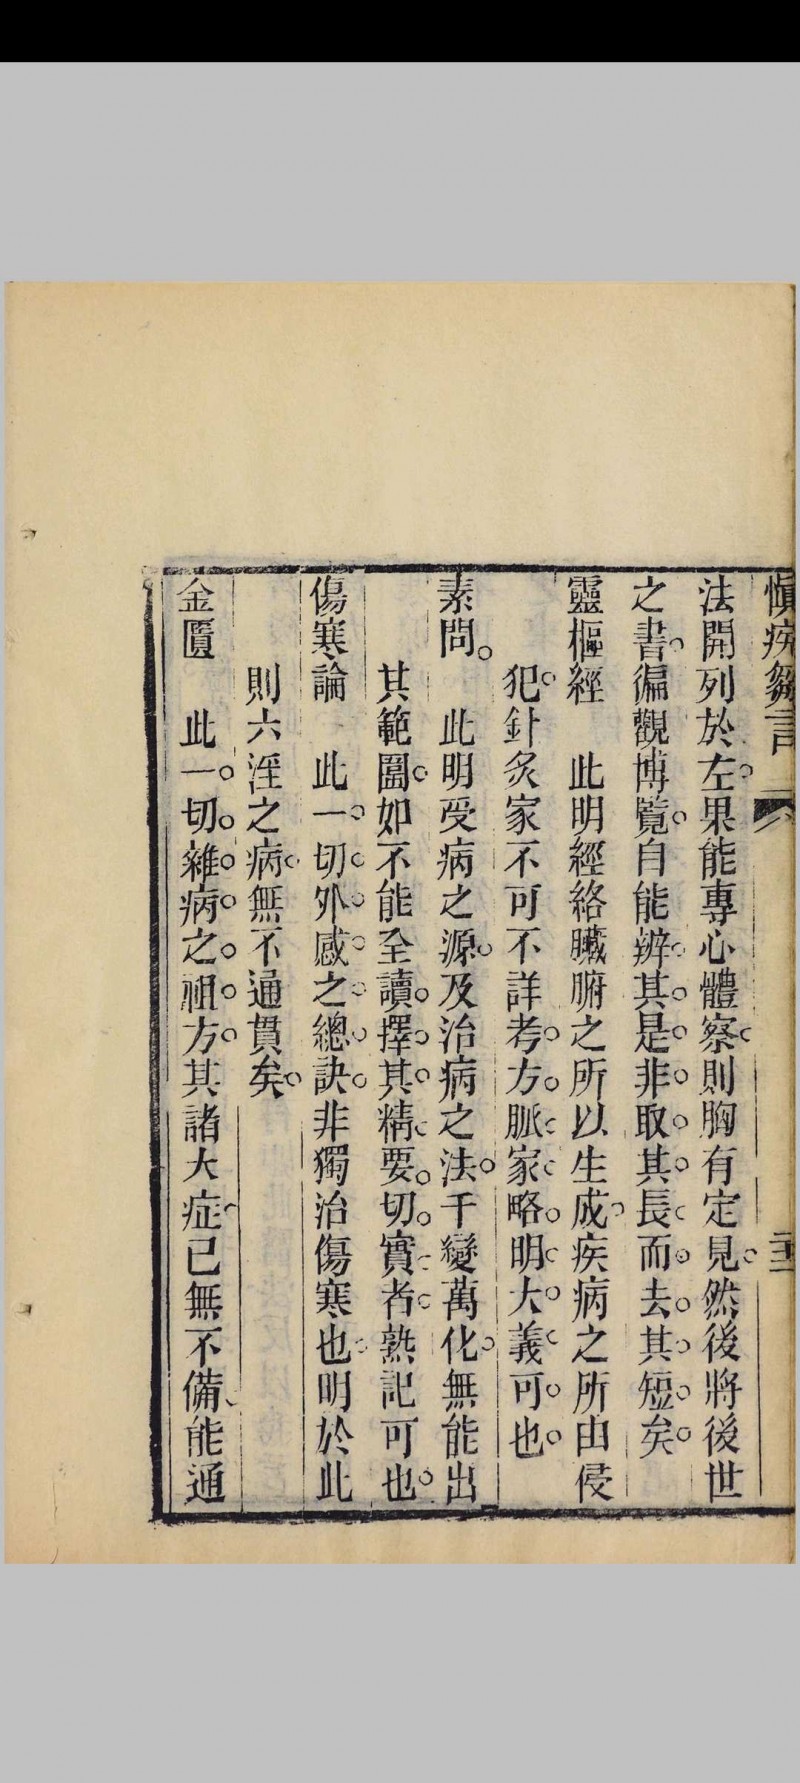 慎疾芻言
二十二
法開列於左果能專心體察則胸有定見然後將後世
之書徧觀博覽自能辨其是非取其長而去其短矣
靈樞經　此明經絡臟腑之所以生成疾病之所由侵
犯針灸家不可不詳考方脈家略明大義可也
素問　此明受病之源及治病之法千變萬化無能出
其範圍如不能全讀擇其精要切實者熟記可也
傷寒論　此一切外感之總訣非獨治傷寒也明於此
則六淫之病無不通貫矣
金匱　此一切雜病之祖方其諸大症已無不備能通